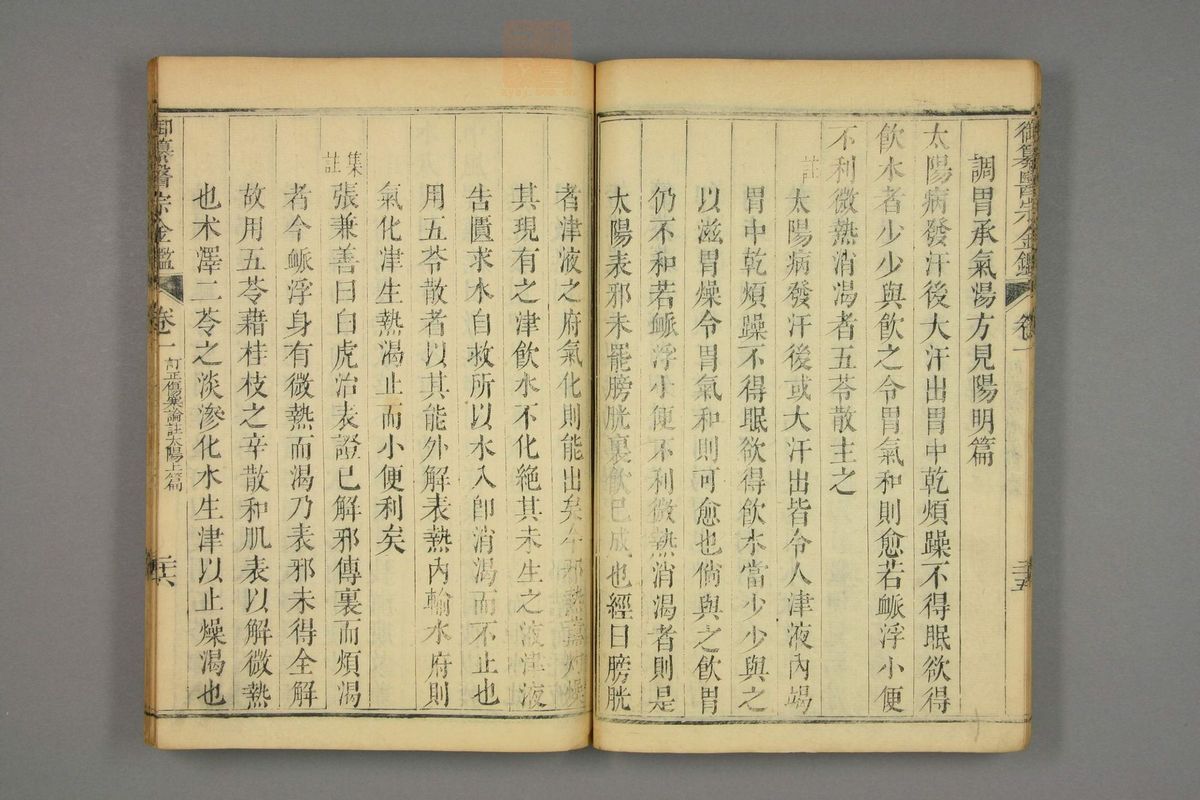 御纂醫宗金鑑 卷一 三五
調胃承氣湯方見陽明篇
太陽病發汗後大汗出胃中乾煩躁不得眠欲得
飲水者少少與飲之令胃氣和則愈若脈浮小便
不利微熱消渴者五苓散主之
註太陽病發汗後或大汗出皆令人津液內竭
胃中乾煩躁不得眠欲得飲水當少少與之
以滋胃燥令胃氣和則可愈也倘與之飲胃
仍不和若脈浮小便不利微熱消渴者則是
太陽表邪未罷膀胱裏飲已成也經曰膀胱
者津液之府氣化則能出矣今邪熱熏灼燥
其現有之津飲水不化絶其未生之液津液
告匱求水自救所以水入卽消渴而不止也
用五苓散者以其能外解表熱內輸水府則
氣化津生熱渴止而小便利矣
集註張兼善曰白虎治表證已解邪傳裏而煩渴
者今脈浮身有微熱而渴乃表邪未得全解
故用五苓藉桂枝之辛散和肌表以解微熱
也术澤二苓之淡滲化水生津以止燥渴也
御纂醫宗金鑑 卷一 訂正傷寒論註太陽上篇 三六